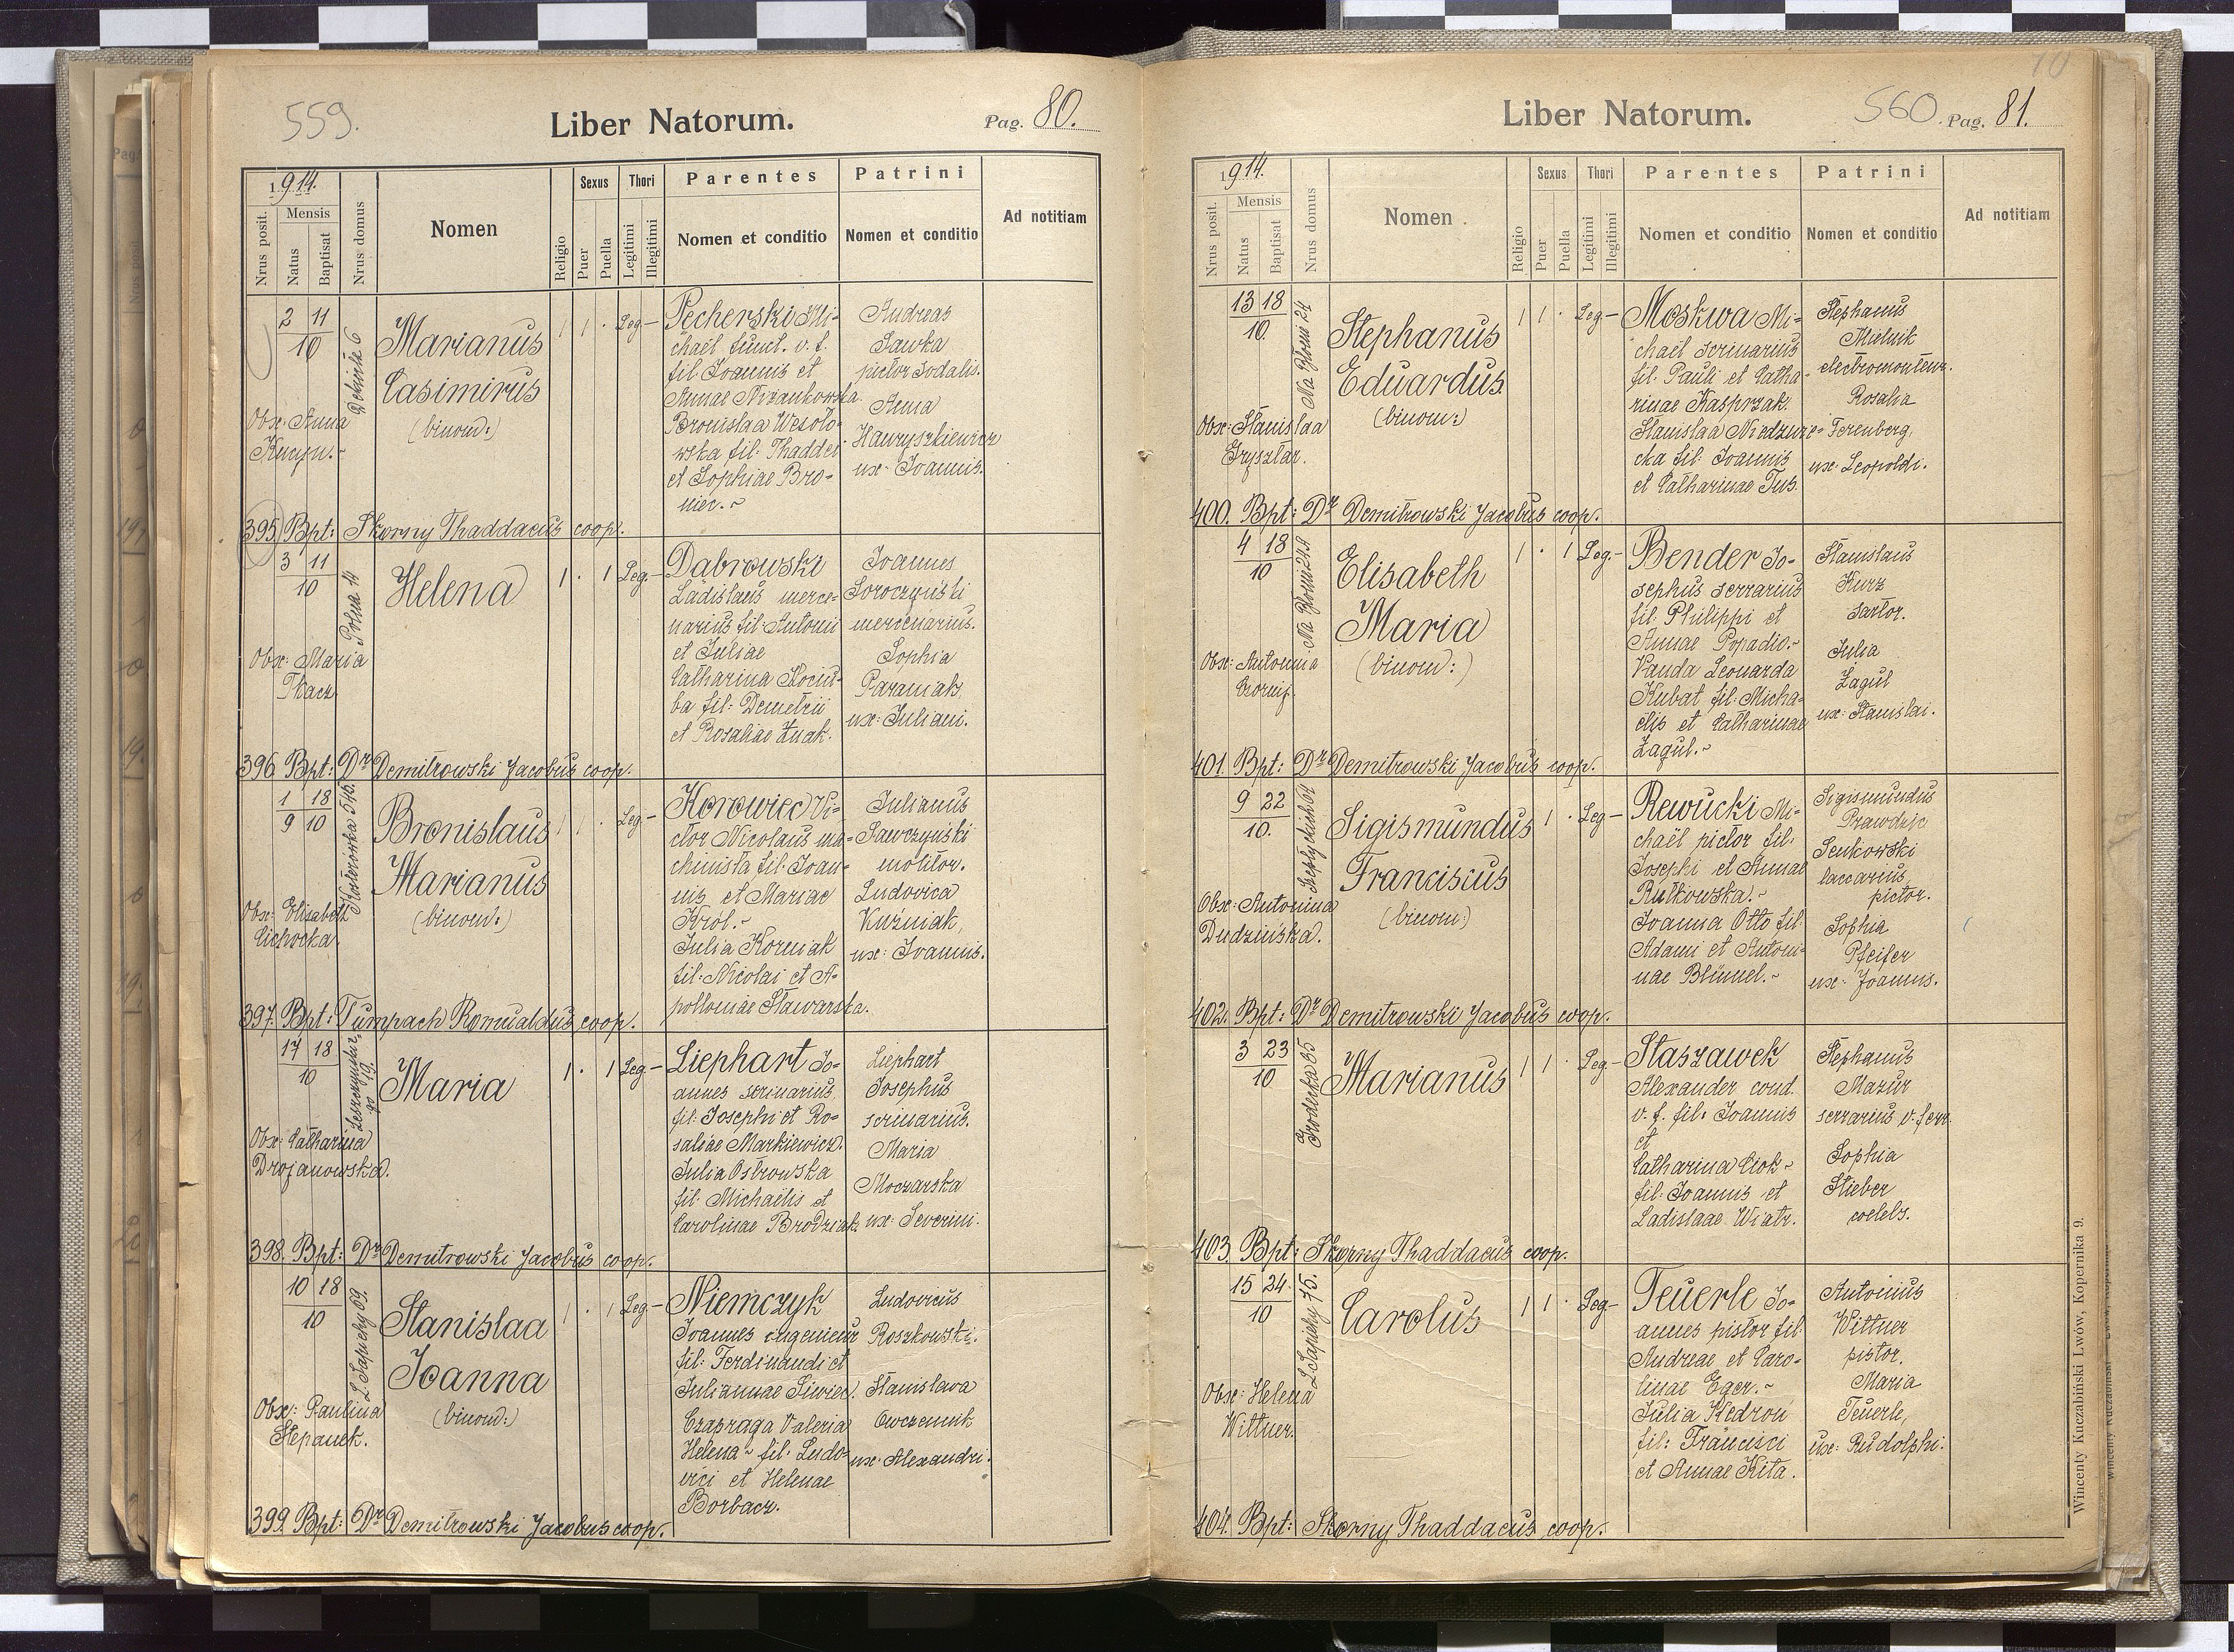 559.
Liber Natorum.
Pag. 80.
1914.
Nrus posit.
Mensis
Natus
Baptisat
Nrus domus
Nomen
Religio
Sexus
Puer
Puella
Thori
Legitimi
Illegitimi
Parentes
Nomen et conditio
Patrini
Nomen et conditio
Ad notitiam
2 11
10
Marianus
Casimirus
(binom:)
1 1 · Leg-
Obx: Anna
Pecherski Mi-
chaël funct. v. f.
fil Joannis et
Annae Nizankowska
Bronislaa Wesoło-
wska fil: Thaddei
et Sophiae Bro-
niec.~
Andreas
Sawka
pictor sodalis.
Anna
Hawryszkiewicz
ux: Joannis.
395. Bpt: Skorny Thaddaeus coop.
3 11
10
Polna 14
Helena
1 · 1 Leg-
Obx: Maria
Tkacz
Dabrowski
Ladislaus merce-
narius fil: Antoni
et Juliae
Catharina Kociu-
ba fil: Demetrii
et Rosaliae Zuak.
Joannes
Soroczyński
mercenarius.
Sophia
Paraniak
ux: Juliani.
396. Bpt: Dr Demitrowski Jacobus coop.
1 18
9 10
Bronislaus
Marianus
(binom:)
1 1 · Leg-
Obx: Elisabeth
Cichocka.
Korowiec Vi-
ctor Nicolaus ma-
chinista fil: Joan-
nis et Mariae
Król.~
Julia Korniak
fil: Nicolai et A-
polloniae Stawarska.
Julianus
Sawczyński
molitor.
Ludovica
Kuźniak,
ux: Joannis.
397. Bpt: Tumpach Romualdus coop.
17 18
10
Maria
1 · 1 Leg-
Obx: Catharina
Drojanowska.
Liephart Jo-
annes scrinarius
fil: Josephi et Ro-
saliae Markiewicz.
Julia Ostrowska
fil: Michaëlis et
Carolinae Brodziak
Liephart
Josephus
scrinarius.
Maria
Moczarska
ux: Severini.
398. Bpt: Dr Demitrowski Jacobus coop.
10 18
10
L Sapiehy 69.
Stanislaa
Joanna
(binom:)
1 · 1 Leg-
Obx: Paulina
Stepanek.
Niemczyk
Joannes ingenieur
fil: Ferdinandi et
Juliannae Siwiec.
Czapraga Valeria
Helena~ fil: Ludo-
vici et Helenae
Borbacz.
Ludovicus
Roszkowski.
Stanislawa
Owczarnik
ux: Alexandri.
399. Bpt: Dr Demitrowski Jacobus coop.
Liber Natorum.
560.
Pag. 81.
1914.
Nrus posit.
Mensis
Natus
Baptisat
Nrus domus
Nomen
Religio
Sexus
Puer
Puella
Thori
Legitimi
Illegitimi
Parentes
Nomen et conditio
Patrini
Nomen et conditio
Ad notitiam
13 18
10.
Na Błonie 24
Stephanus
Eduardus
(binom:)
1 1 · Leg-
Obx: Stanislaa
Gryształ.
Moskwa Mi-
chaël scrinarius
fil: Pauli et Catha-
rinae Kasprzak.
Stanislaa Niedzwie-
cka fil: Joannis
et Catharinae Tus.
Stephanus
Malnik
electromonteur.
Rosalia
Ferenberg,
ux: Leopoldi.
400. Bpt: Dr Demitrowski Jacobus coop.
4 18
10
Elisabeth
Maria
(binom:)
1 · 1 Leg-
Obx: Antonina
Bender Jo-
sephus serrarius
fil: Philippi et
Annae Popadio.~
Vanda Leonarda
Kubat fil: Micha-
ëlis et Catharinae
Zagul.~
Stanislaus
Kurz
sartor.
Julia
Zagul
ux: Stanislai.
401. Bpt: Dr Demitrowski Jacobus coop.
9 22
10.
Sigismundus
Franciscus
(binom:)
1 · Leg-
Obx: Antonina
Dudzińska.
Rewucki Mi-
chaël pictor fil:
Josephi et Annae
Rutkowska.~
Joanna Otto fil:
Adami et Antoni-
nae Blümel.~
Sigismundus
Prawdzic
Senkowski
laccarius,
pictor.
Sophia
Pfeifer
ux: Joannis.
402. Bpt: Dr Demitrowski Jacobus coop.
3 23
10
Grodecka 35
Marianus
1 1 · Leg-
Staszawek
Alexander cond.
v. f. fil: Joannis
et
Catharina Ciok~
fil: Joannis et
Ladislaae Wiatr.
Stephanus
Mazur
serrarius v. ferr.
Sophia
Stieber
coelebs.
403. Bpt: Skorny Thaddaeus coop.
15 24
10
L Sapiehy 75.
Carolus
1 1 · Leg-
Obx: Helena
Wittner.
Teuerle Jo-
annes pistor fil:
Andreae et Caro-
linae Eger.~
Julia Kedroń
fil: Francisci
et Annae Kita.
Antonius
Wittner
pistor.
Maria
Teuerle,
ux: Rudolphi.
404. Bpt: Skorny Thaddaeus coop.
Wincenty Kuczabiński Lwów, Kopernika 9.